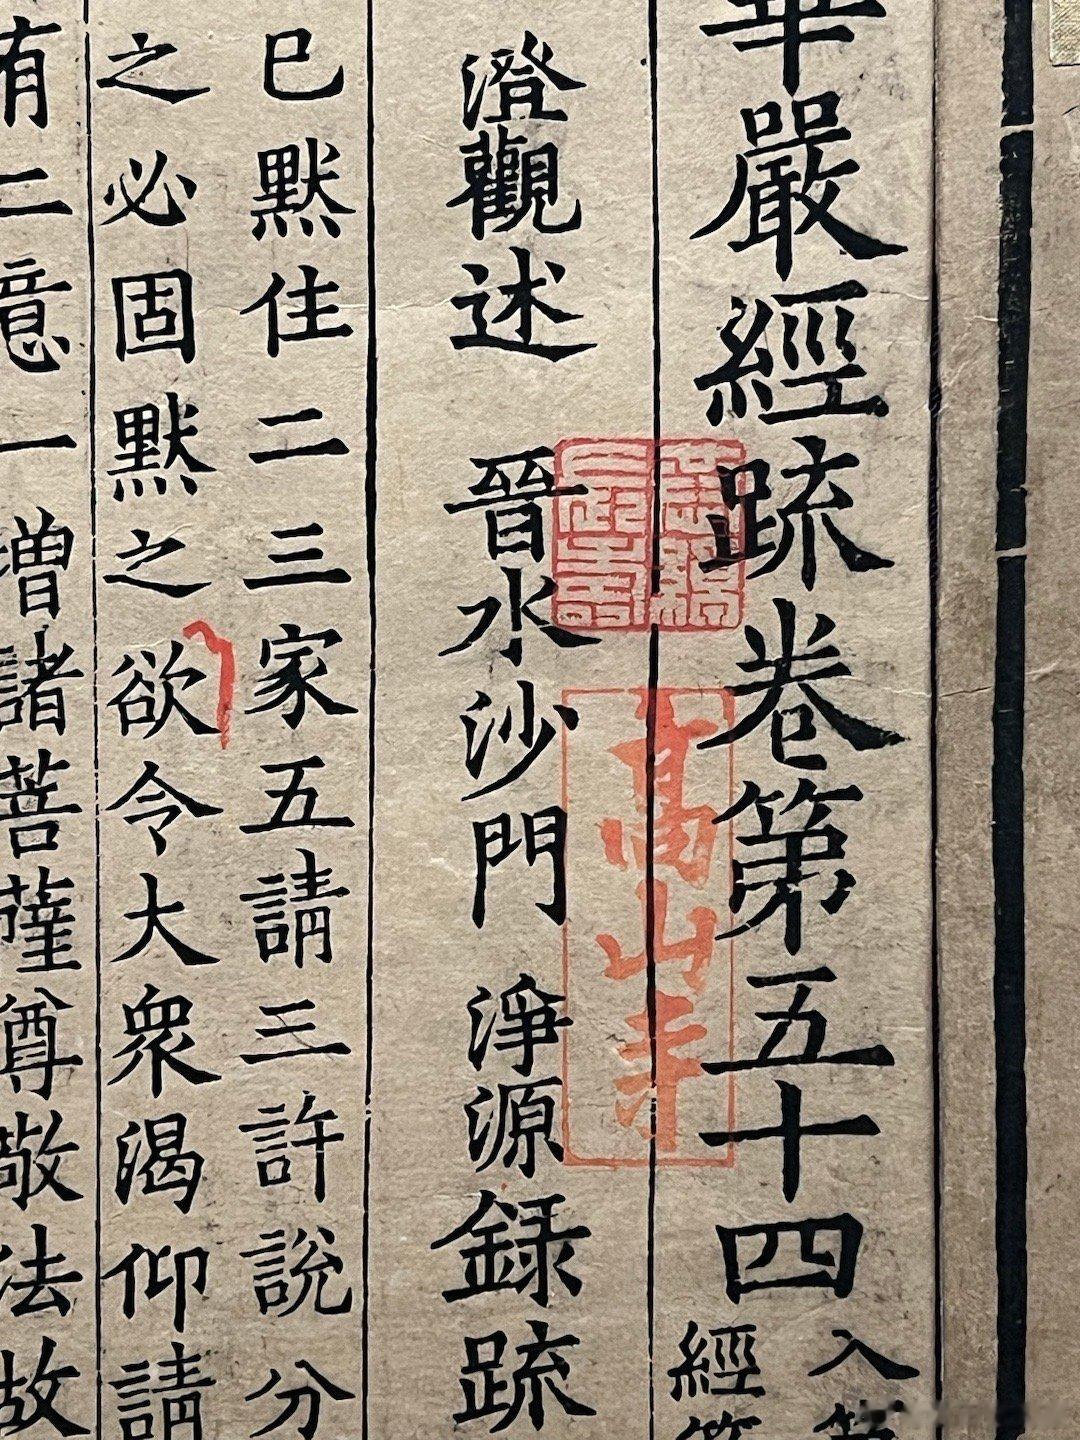 華嚴經疏卷第五十四
入第
經第
澄觀述 晉水沙門 淨源録疏
已默住二三家五請三許說分
之必固默之欲令大衆渴仰請
有二意一增諸菩薩尊敬法故
高山寺